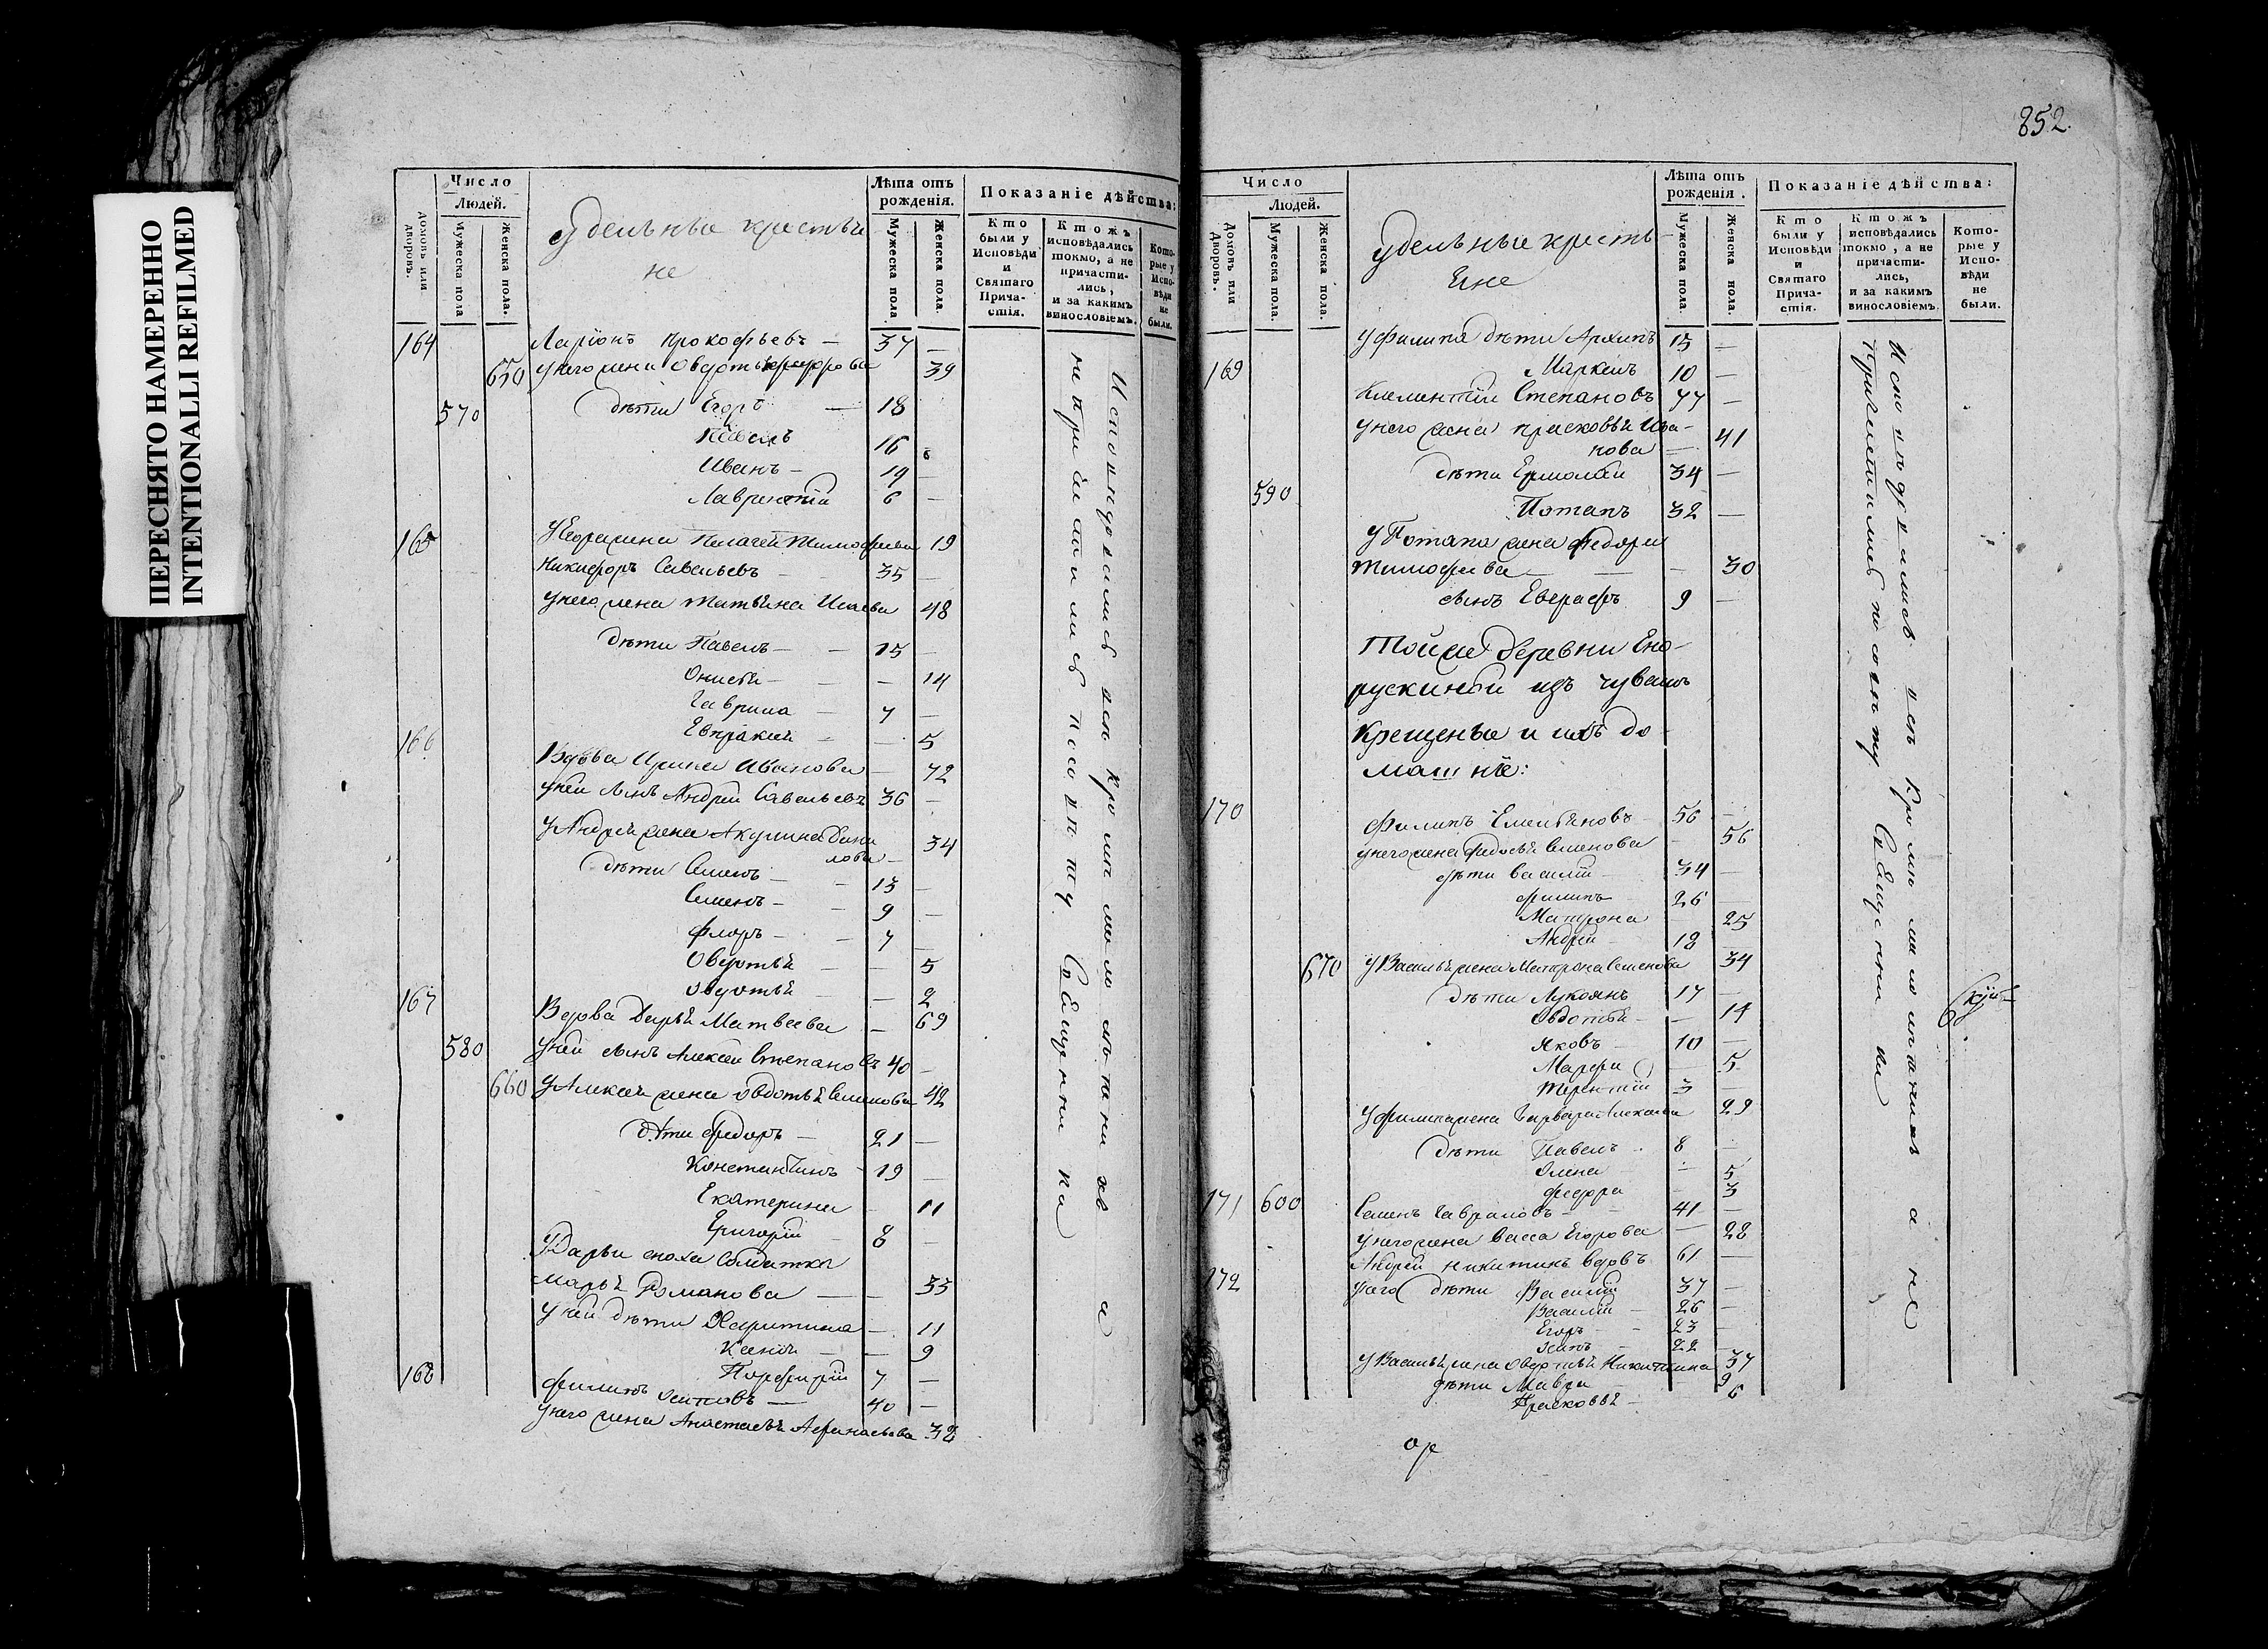 ПЕРЕСНЯТО НАМЕРЕННО
INTENTIONALLI REFILMED
Число
Людей.
Домовъ или дворовъ.
Мужеска пола
Женска пола.
Удельные крестья
не
Лѣта отъ
рожденія.
Мужеска пола
Женска пола.
Показаніе дѣйства:
Кто были у Исповѣди и Святаго Прича-стія.
Ктожъ исповѣдались токмо, а не причасти-лись, и за какимъ винословіемъ.
Кото-рые у Испо-вѣди не были.
164 Ларіонъ Прокофьевъ — 37 —
650 у него жена Овдотья 39
570 дѣти Егоръ — 18
Павелъ 16
Иванъ — 14 —
Лаврентій 6 —
165 У Егора жена Пелагея Тимофеева 19
Никифоръ Савельевъ — 35 —
у него жена Татьяна Исаева 48
дѣти Павелъ — — 15 —
Онисья — — 14
Гаврила — 7 —
Евпракси — — 5
166 Вдова Ирина Иванова — 72
у ней сынъ Андрей Савельевъ 36 —
У Андрея жена Акулина Дани
лова — 34
дѣти Семенъ — — 13 —
Семенъ — — 9 —
Флоръ — — 7 —
Овдотья — — 5
Овдотья — — 2
167 Вдова Дарья Матвеева — 69
580 у ней сынъ Алексей Степановъ 40 —
660 У Алексея жена Овдотья Семенова 42
дѣти Федоръ — 21 —
Константинъ 19 —
Екатерина — 11
Григорій 8 —
У Дарьи сноха солдатка
Марья Романова — — 33
у ней дѣти Харитина — 11
Ксенья — — 9
Порфирій 7 —
168 Филипъ Осиповъ — 40 —
у него жена Анастасья Афанасьева 32
Исповѣдались все кромѣ малолѣтнихъ а
не причастились по совѣту Священника
852.
Число
Людей.
Домовъ или Дворовъ.
Мужеска пола.
Женска пола.
Удельные кресть
яне
Лѣта отъ
рожденія.
Мужеска пола.
Женска пола.
Показаніе дѣйства:
Кто были у Исповѣди и Святаго Прича-стія.
Ктожъ исповѣдались токмо, а не причасти-лись, и за какимъ винословіемъ.
Кото-рые у Испо-вѣди не были.
У Филипа дѣти Архипъ 15 —
169 Маркелъ 10 —
Климентій Степановъ 77 —
у него жена Прасковья Ива-
нова — 41
дѣти Ермолай 34 —
590 Потапъ 32 —
У Потапа жена Федора
Тимофеева — — — 30
сынъ Евграфъ 9 —
Той же деревни Ено-
рускиной изъ чувашъ
крещеные и ихъ до
машніе:
170 Филипъ Емельяновъ 56 —
у него жена Федосья Семенова — 56
дѣти Василій — 34 —
Филипъ 26 —
Матрона — 25
Андрей 18 —
670 У Василья жена Матрона Семенова 34
дѣти Лукоянъ 17 —
Овдотья — 14
Яковъ 10 —
Марфа — 5
Терентій 3 —
У Филипа жена Варвара 29
дѣти Павелъ 8 —
Олена — 5
Федора — 3
171 600 Семенъ Гавриловъ 41 —
у него жена Васса Егорова — 28
Андрей Никитинъ вдовъ 61 —
172 у него дѣти Василій 37 —
Василій — 26 —
Егоръ — 23 —
Осипъ — 22 —
У Василья жена Овдотья Никитина 37
дѣти Мавра — 9
Прасковья — 6
Исповѣдались все кромѣ малолѣтнихъ а не
причастились по совѣту Священника